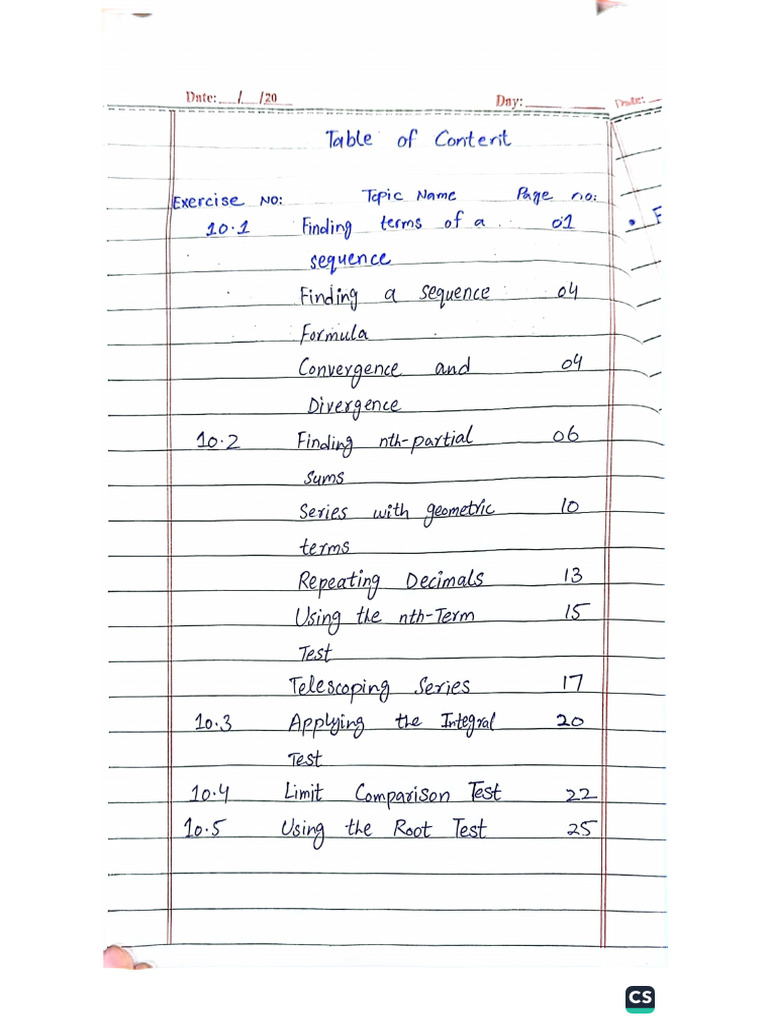 Date: __/__/20__ Day: ________ Date: __
Table of Content
Exercise No: Topic Name Page no:
10.1 Finding terms of a 01
sequence
Finding a sequence 04
Formula
Convergence and 04
Divergence
10.2 Finding nth-partial 06
sums
Series with geometric 10
terms
Repeating Decimals 13
Using the nth-Term 15
Test
Telescoping Series 17
10.3 Applying the Integral 20
Test
10.4 Limit Comparison Test 22
10.5 Using the Root Test 25
CS